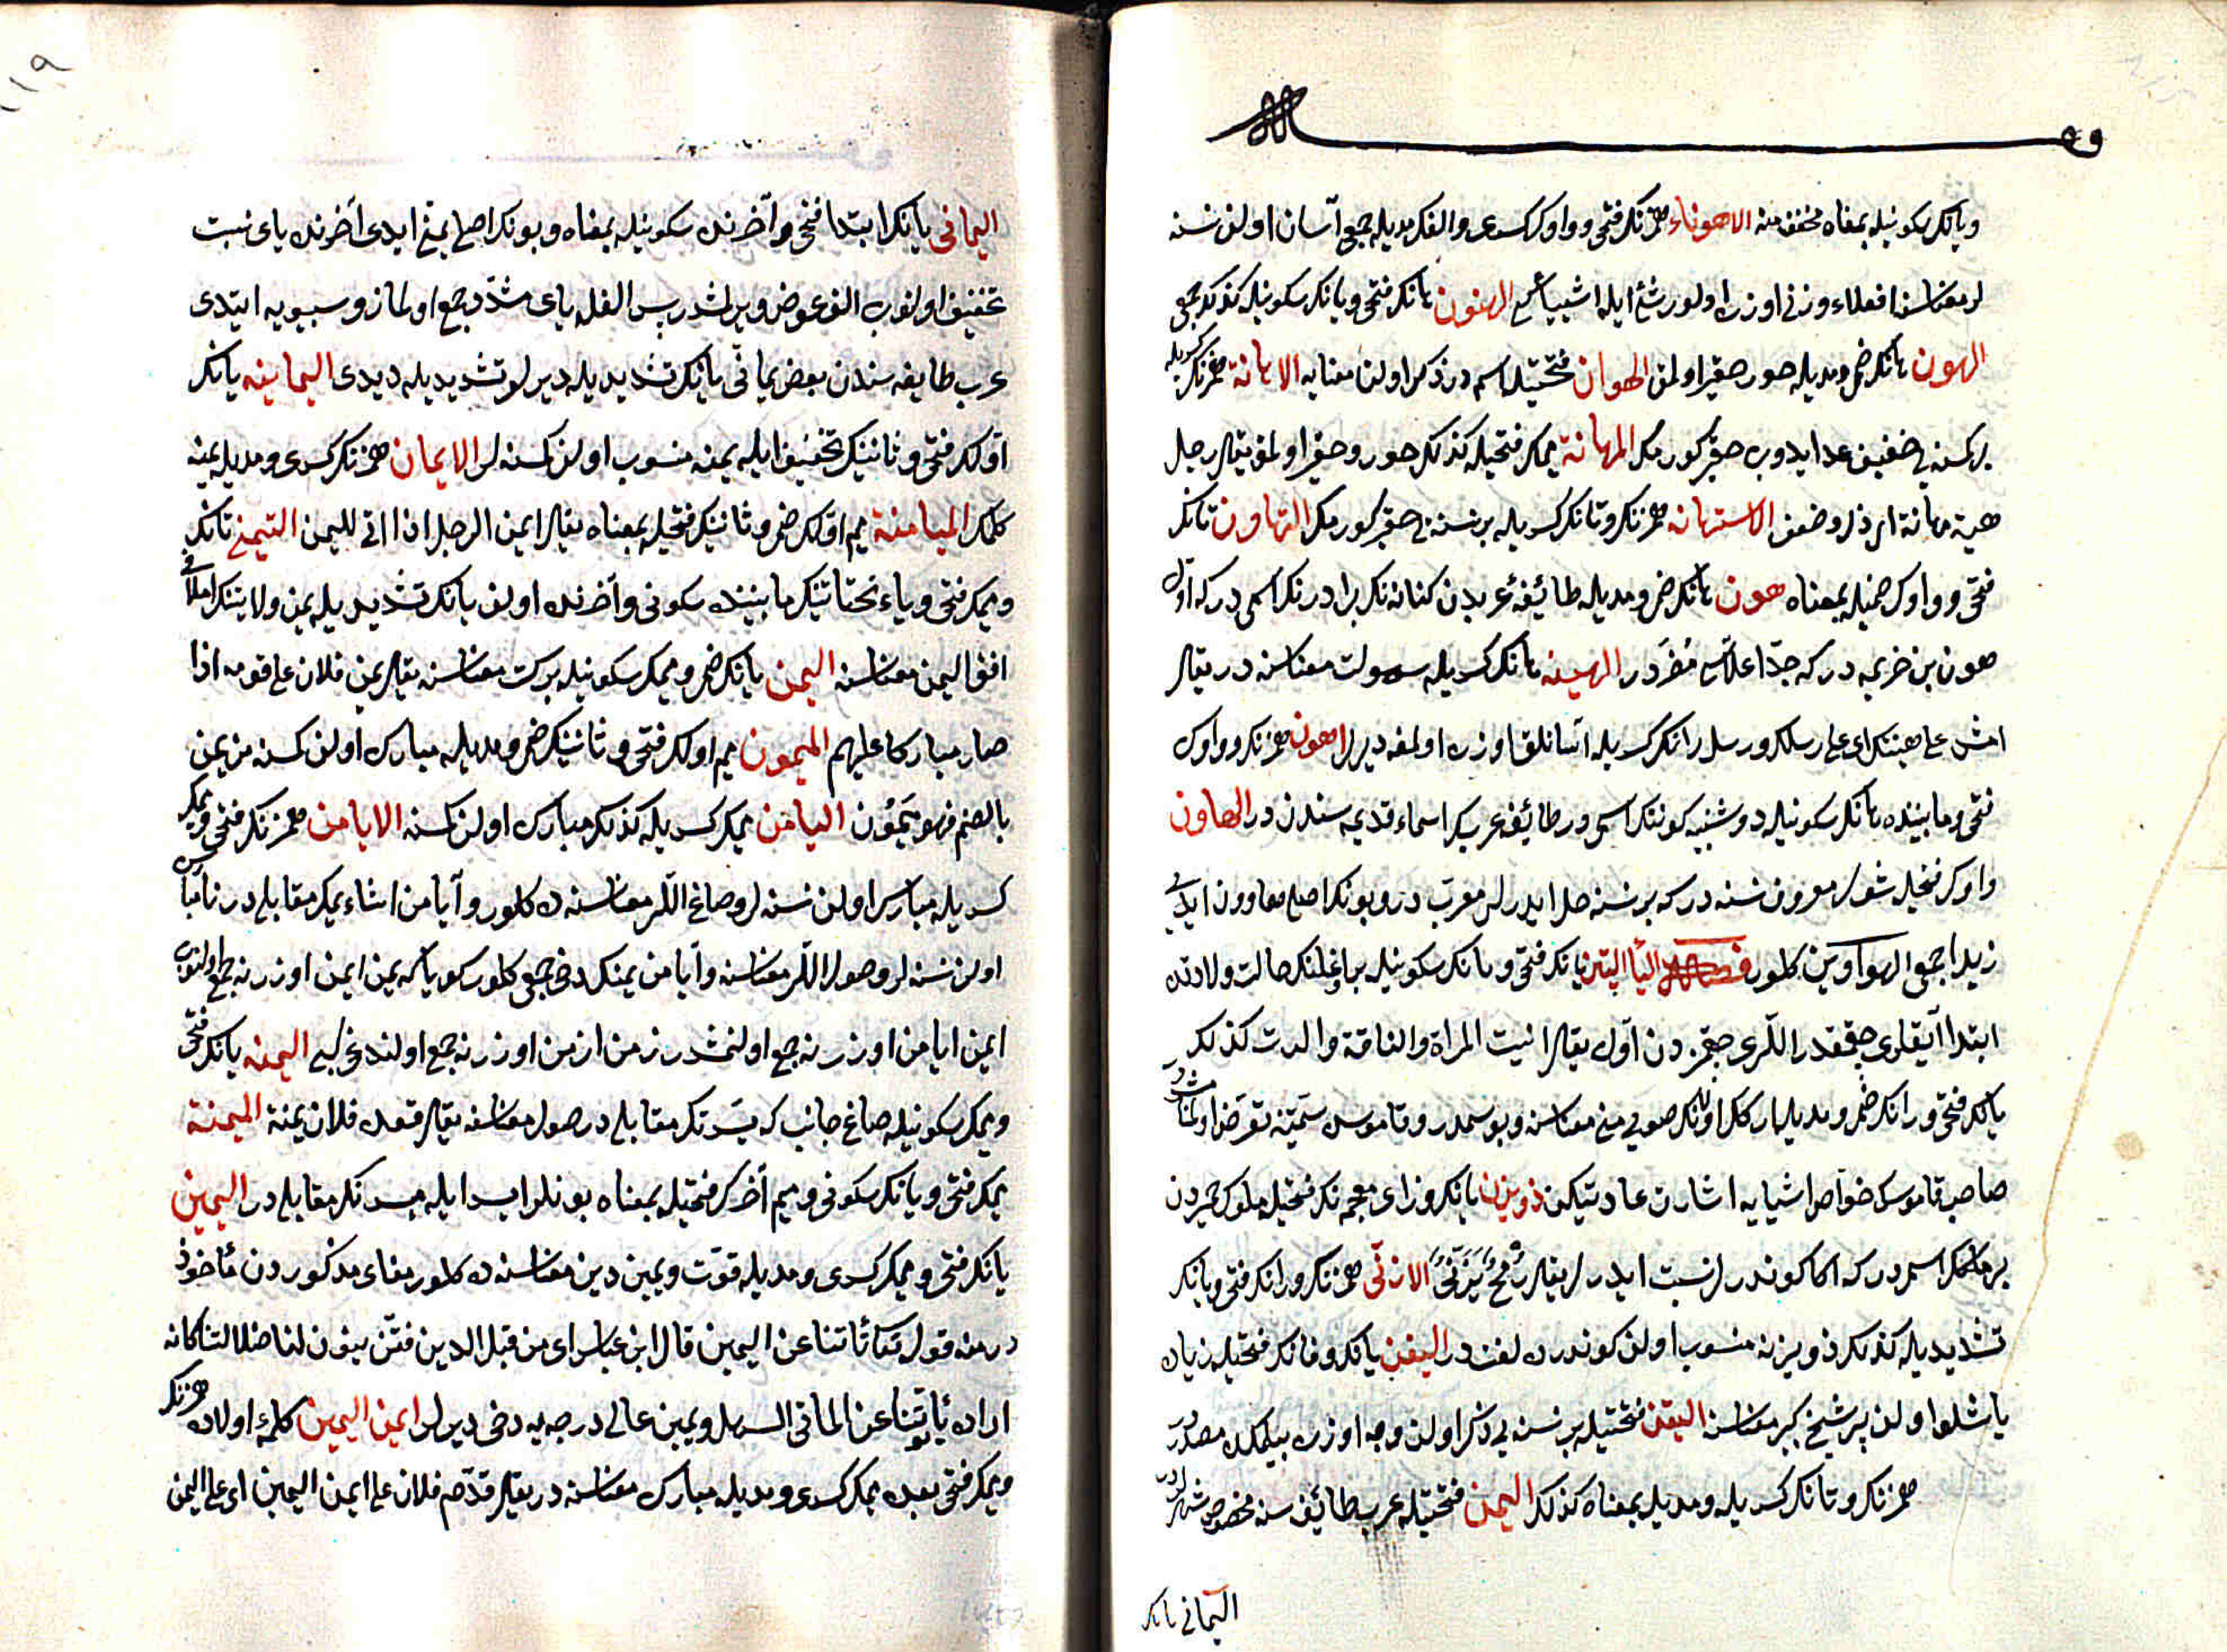 وقف الله
ويانك سكونيله بمعناه مخفف منه الاهوناء همزنك فتحى وواوك كسرى والفك مديله جمعى آسان اولن نسنه
لر معناسنه افعلاء وزنى اوزره اولور شئ ايله اشيياء الهنون هانك فتحى ويانك سكونيله كذلك جمعى
الهون هانك ضم ومديله خور حقير اولمق الهوان فتحتيله اسمدر ذكر اولنن معنايه الاهانة همزنك كسريله
بر كمسنه يى ضعيف عد ايدوب حقير كورمك المهانة ميمك فتحيله كذلك خور وحقير اولمق يقال رجل
فيه مهانة اى ذل وضعف الاستهانه همزنك وتانك كسريله بر نسنه يى حقير كورمك التهاون تانك
فتحى وواوك ضميله بمعناه هون هانك ضم ومديله طائفۀ عربدن كنانه نك برادرنك اسمى دركه اول
هون بن خزيمه دركه جد اعلاسى مضردر الهينه هانك كسريله سهولت معناسنه در يقال
امش على هينتك اى على رسلك ورسل رانك كسريله آسانلق اوزره اولمغه ديرلر اهون همزنك وواوك
فتحى وما بينده هانك سكونيله دوشنبه كوننك اسمى در طائفۀ عربك اسماء قديمه سندن در الهاون
واوك فتحيله شول معروف نسنه دركه بر نسنه حل ايدرلر معرب در وبونك اصلى هاوون ايدى
زيرا جمعى الهواوين كلور فصل اليا اليتن يانك فتحى وتانك سكونيله براوغلنك حالت ولادتده
ابتدا اياقلرى چقمقدر اللرى چقمزدن اول يقال ايتنت المرأة والناقة والدت كذلك
يانك فتحى ورانك ضم ومديله صولى منى معناسنه وبو سمدر وقاموس سميته تعرض اولنمامشدر
صاحب قاموسك خواص اشيايه اشارت عادتيكن ذو يزن يانك وزاى معجمه نك فتحيله ملوك حميردن
بر ملكك اسمدركه اكا كوندرلر نسبت ايدرلر يقال رمح يزنى الازنى همزنك ورانك فتحى ويانك
تشديديله كذلك ذو يزنه منسوب اولن كوندرده لغتدر اليفن يانك وفانك فتحيله زياده
ياشلو اولن پير شيخ كبير معناسنه اليقن فتحتيله بر نسنه يى ذكر اولنن وجه اوزره بيلمكده مصدردر
همزنك وتانك كسريله ومديله بمعناه كذلك اليمن فتحتيله عرب طائفه سنه مخصوص شهرلردر
اليمانى يانك
١١٩
اليمانى يانك ابتدا فتحى وآخرنده سكونيله بمعناه وبونك اصلى يمنى ايدى آخرنده ياى نسبت
تخفيف اولنوب الف عوض ويرلمشدر پس الفله ياى مشدد جمع اولماز وسيبويه ايتدى
عرب طايفه سندن بعض يمانى يانك تشديديله ديرلر تشديديله ديدى اليمانيه يانك
اولك فتحى وثانينك تخفيف ايله يمنه منسوب اولن كمسنه لر الايمان همزنك كسرى ومديله يمنه
كلمك الميامنة ميم اولك ضم وثانينك فتحيله بمعناه يقال ايمن الرجل اذا اتى لليمن التيمنى تانك
وميمك فتحى وياء تحتانينك مابينده سكونى وآخرنده اولن يانك تشديديله يمن ولايتنك
افق اليمن معناسنه اليمن يانك ضم وميمك سكونيله بركت معناسنه يقال يمن فلان على قومه اذا
صار مباركا عليهم الميمون ميم اولك فتحى وثانينك ضم ومديله مبارك اولن كمسنه من يمن
بالضم فهو ميمون اليامن ميمك كسريله كذلك مبارك اولن كمسنه الايامن همزنك فتحى وميمك
كسريله مبارك اولن نسنه لر وصاغ اللر معناسنه ده كلور وآيامن اشاءيمك مقابلى در نامبارك
اولن نسنه لر وصول اللر معناسنه وآيامن يمنك دخى جمعى كلور كويا كه يمن ايمن اوزرنه جمع اولنوب
ايمن ايامن اوزرنه جمع اولنمشدر زمن ازمن اوزرنه جمع اولندوغى كبى اليمنه يانك فتحى
وميمك سكونيله صاغ جانب كه يسرتك مقابلى در صول معناسنه يقال قعد فلان يمنة الميمنة
ميمك فتحى ويانك سكونى وميم آخرك فتحيله بمعناه بونلر ايسر ايله ميسرنك مقابلى در اليمين
يانك فتحى وميمك كسرى ومديله قوت ويمين دين معناسنه ده كلور معناى مذكوردن مأخوذ
در منه قوله تعالى تأتوننا عن اليمين قال ابن عباس اى من قبل الدين فتزينون لنا ضلالتنا كانه
اراد تأتوننا عن المأتى السهل ويمين عالى درجه يه دخى ديرلر ايمن اليمين كلمۀ اولاده همزنك
وميمك فتحى بعده ميمك كسرى ومديله مبارك معناسنه در يقال قدم فلان على ايمن اليمين اى على اليمن